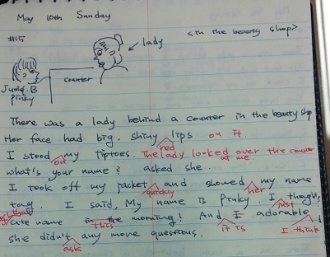 May 10th Sunday
<in the beauty shop>
#15
lady
Junie. B
pinky
counter
There was a lady behind a counter in the beauty shop
Her face had big. shiny red lips on it
I stood on my tiptoes. The lady looked over the counter at me.
what's your name? asked she.
I took off my jacket quickly and showed her my name
tag. I said, My name is pinky. I just though,
cute name this morning! And it is adorable I think
she didn't ask any move questions.